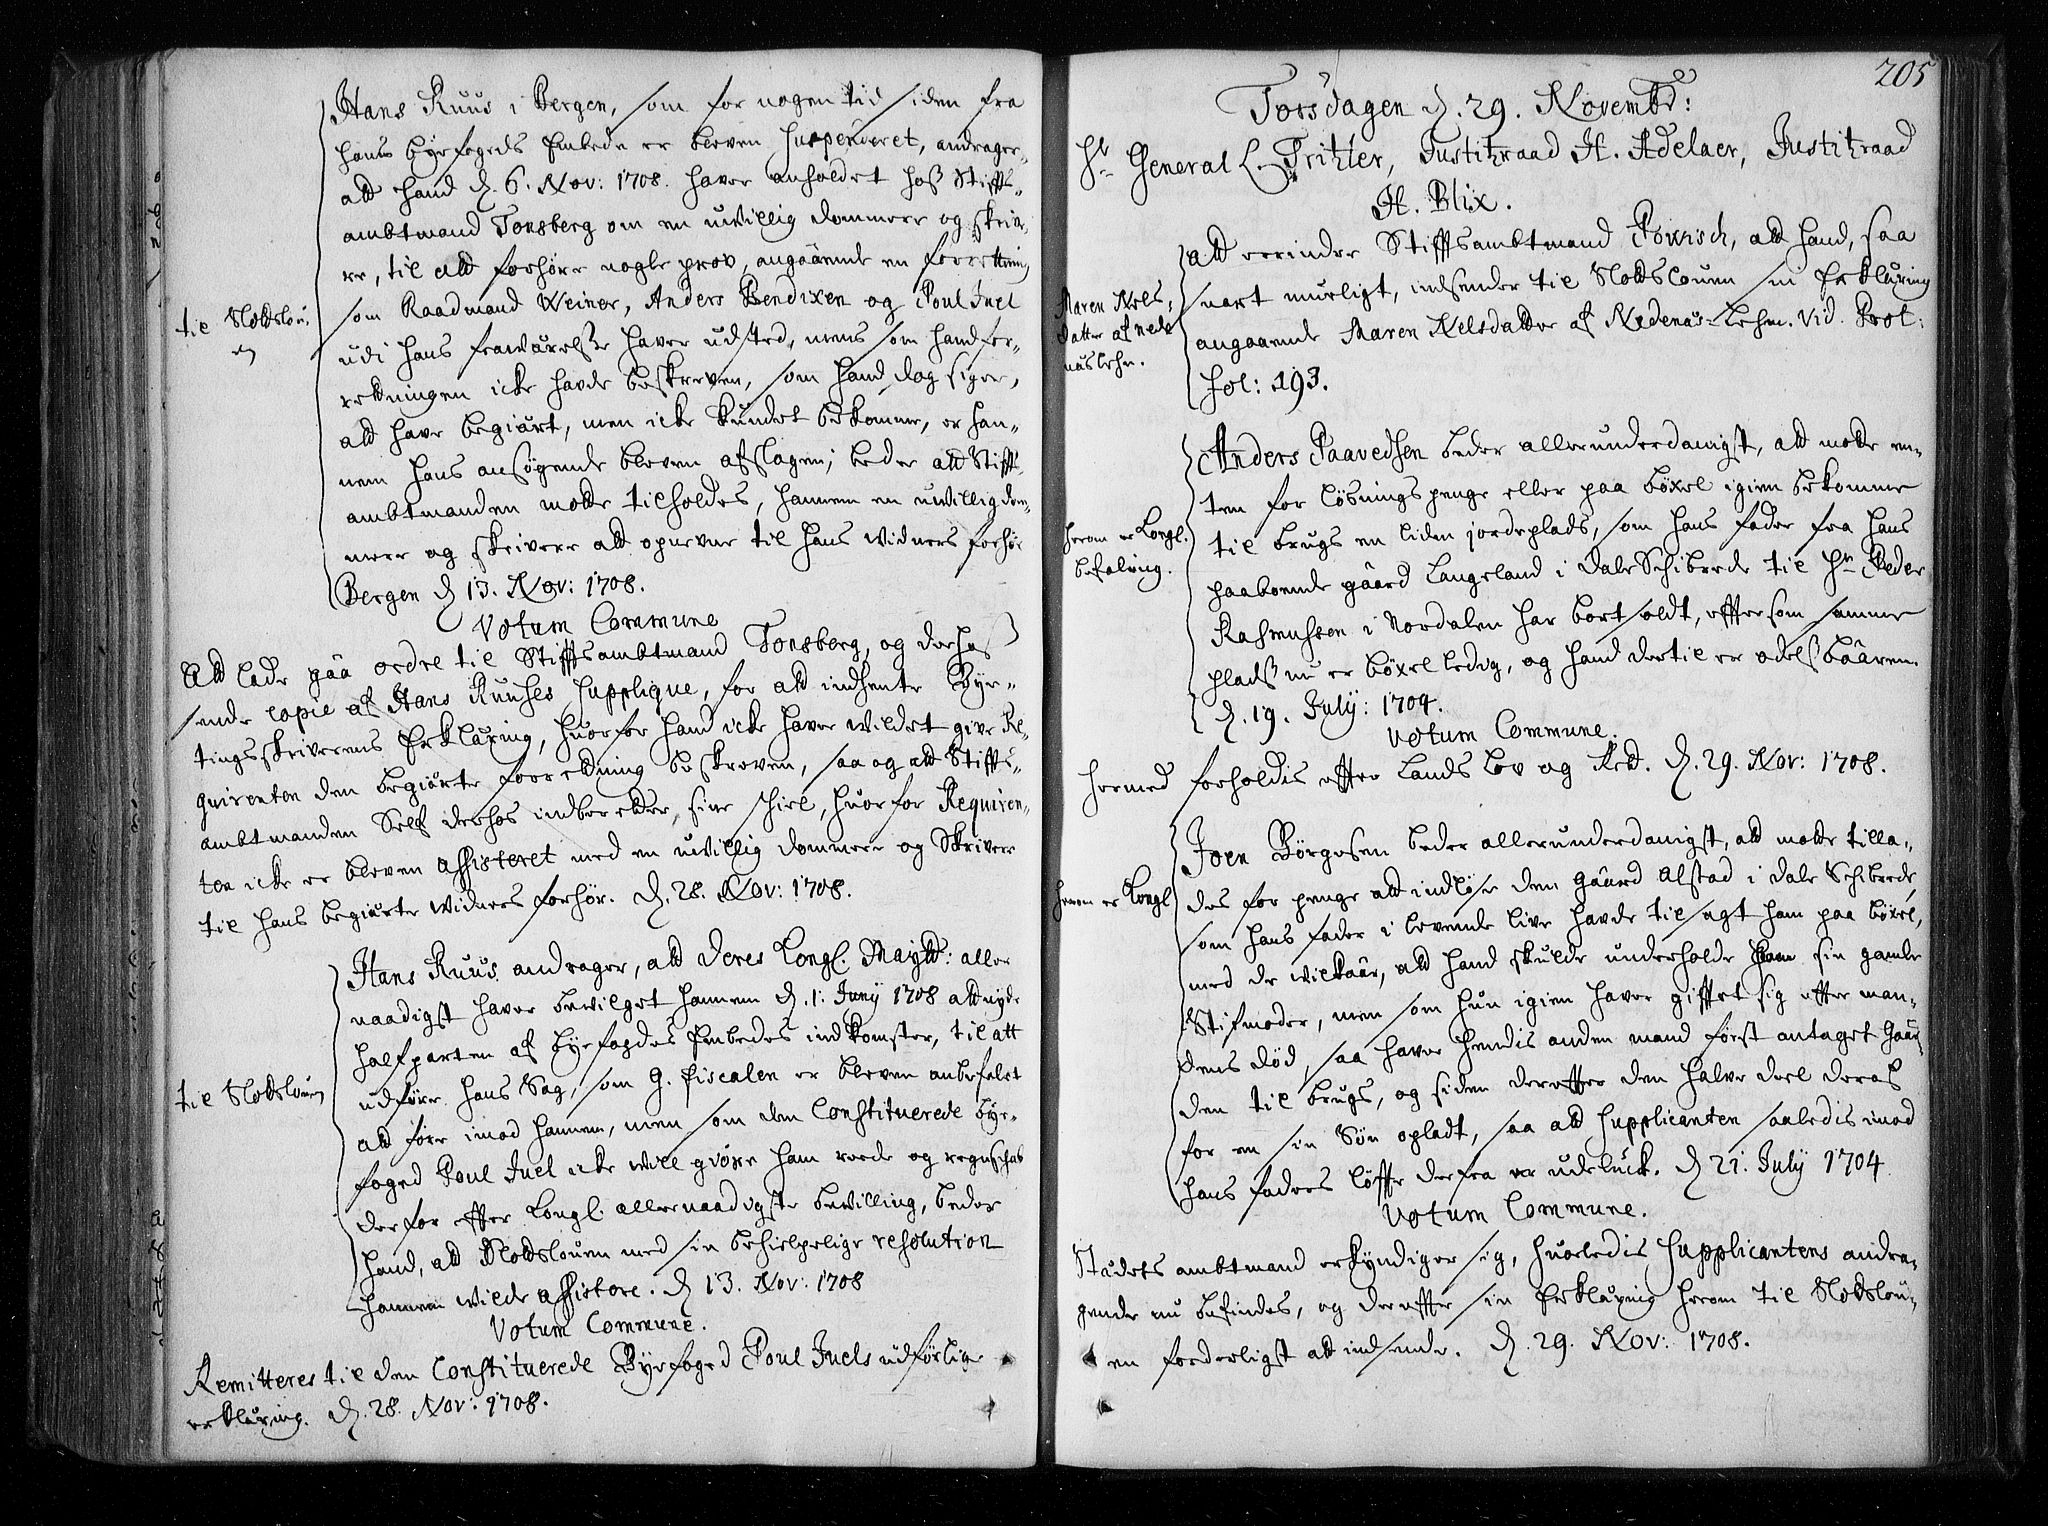 Hans Ruus i Bergen, som for nogen tid siden fra
hans byefogeds Embede er bleven suspenderet, andrager,
att hand d. 6. Nov: 1708. haver anholdet hoss Stiffts-
ambtmand Tonsberg om en uvillig dommere og skrive-
re, til att forhøre nogle prov, angaaende en forretning
som Raadmand Weiner, Anders Bendixen og Poul Juel
udi hans fraværelse haver udsted, mens som hand for-
retningen icke havde beskreven, som hand dog siger,
att have begiært, men icke kundet bekomme, er han-
nem hans ansøgende bleven afslagen; beder att Stiffts-
ambtmanden motte tilholdes, hannem en uvillig dom-
mere og skrivere att opnevne til hans widners forhør
Bergen d. 13. Nov: 1708.
til Slottslou-
en
Votum Commune
Att lade gaa ordre til Stifftsambtmand Tonsberg, og derhoss
sende copie af Hans Ruuses supplique, for att indhente Bye-
tingsskriverens Erklæring, huorfor hand icke haver wildet give Re-
quirenten den begiærte forretning beskreven, saa og att Stiffts-
ambtmanden Self derhos indberetter, sine skiel, huorfor Requiren-
ten icke er bleven assisteret med en uvillig dommere og Skrivere
til hans begiærte widners forhør. d. 28. Nov: 1708.
Hans Ruus andrager, att Deres Kongl. Maytt: aller
naadigst haver bevilget hannem d. 1. Juny 1708 att nyde
halfparten af byefogdes Embedes indkomster, til att
udføre hans Sag, som g. fiscalen er bleven anbefalet
att føre imod hannem, men som den Constituerede bye-
foged Poul Juel icke will giøre ham reede og regnschab
derfor effter Kongl. allernaadigste bevilling, beder
hand, att Slottslouen med sin behielpelige resolution
hannem wilde assistere. d. 13. Nov: 1708
til Slottslouen
Votum Commune.
Remitteres til den Constituerede Byefoged Poul Juels udførlige
erklæring. d. 28. Nov: 1708.
205
Torsdagen d. 29. Novembr:
Hr General L. Tritzler, Justitzraad H. Adelaer, Justitzraad
H. Blix.
Att errindre Stifftsambtmand Powisch, att hand, saa
snart mueligt, indsender til Slottslouen sin Erklæring
angaaende Maren Nelsdatter af Nedenæs-Lehn. Vid. Prot:
fol: 193.
Maren Nels-
datter af nede-
næs lehn.
Anders Paavedsen beder allerunderdanigst, att motte en-
ten for løsnings penge eller paa bøxel igien bekomme
til brugs en liden jordeplads, som hans fader fra hans
paaboende gaard Langeland i Dale Schibrede til Hr Peder
Rasmussen i Nordalen har bortsoldt, efftersom samme
plads nu er bøxel ledig, og hand dertil er odelsbaaren.
d. 19. July: 1704.
herom er Kongl.
befaling.
Votum Commune.
Hermed forholdis effter Lands Lov og Ret. d. 29. Nov: 1708.
Joen Børgesen beder allerunderdanigst, att motte tilla-
des for penge att indløse den gaard Alstad i Dale Schibrede
som hans fader i levende live havde tilsagt ham paa bøxel,
med de wilkaar, att hand skulde underholde sin gamle
Stifmoder, men som hun igien haver gifftet sig effter man-
dens død, saa haver hendis anden mand først antaget gaar-
den til brugs, og siden dereffter den halve deel deraf
for en sin Søn opladt, saa att supplicanten saaledis imod
hans faders løffte derfra er udeluckt. d. 21. July 1704
herom er Kongl
Votum Commune.
Stædets ambtmand erkyndiger sig, huorledis supplicantens andra-
gende nu befindes, og dereffter sin Erklæring herom til Slottslou-
en forderligst att indsende. d. 29. Nov: 1708.